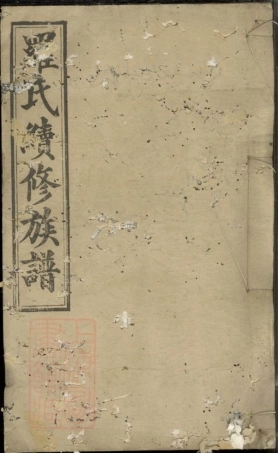 羅氏續修族譜